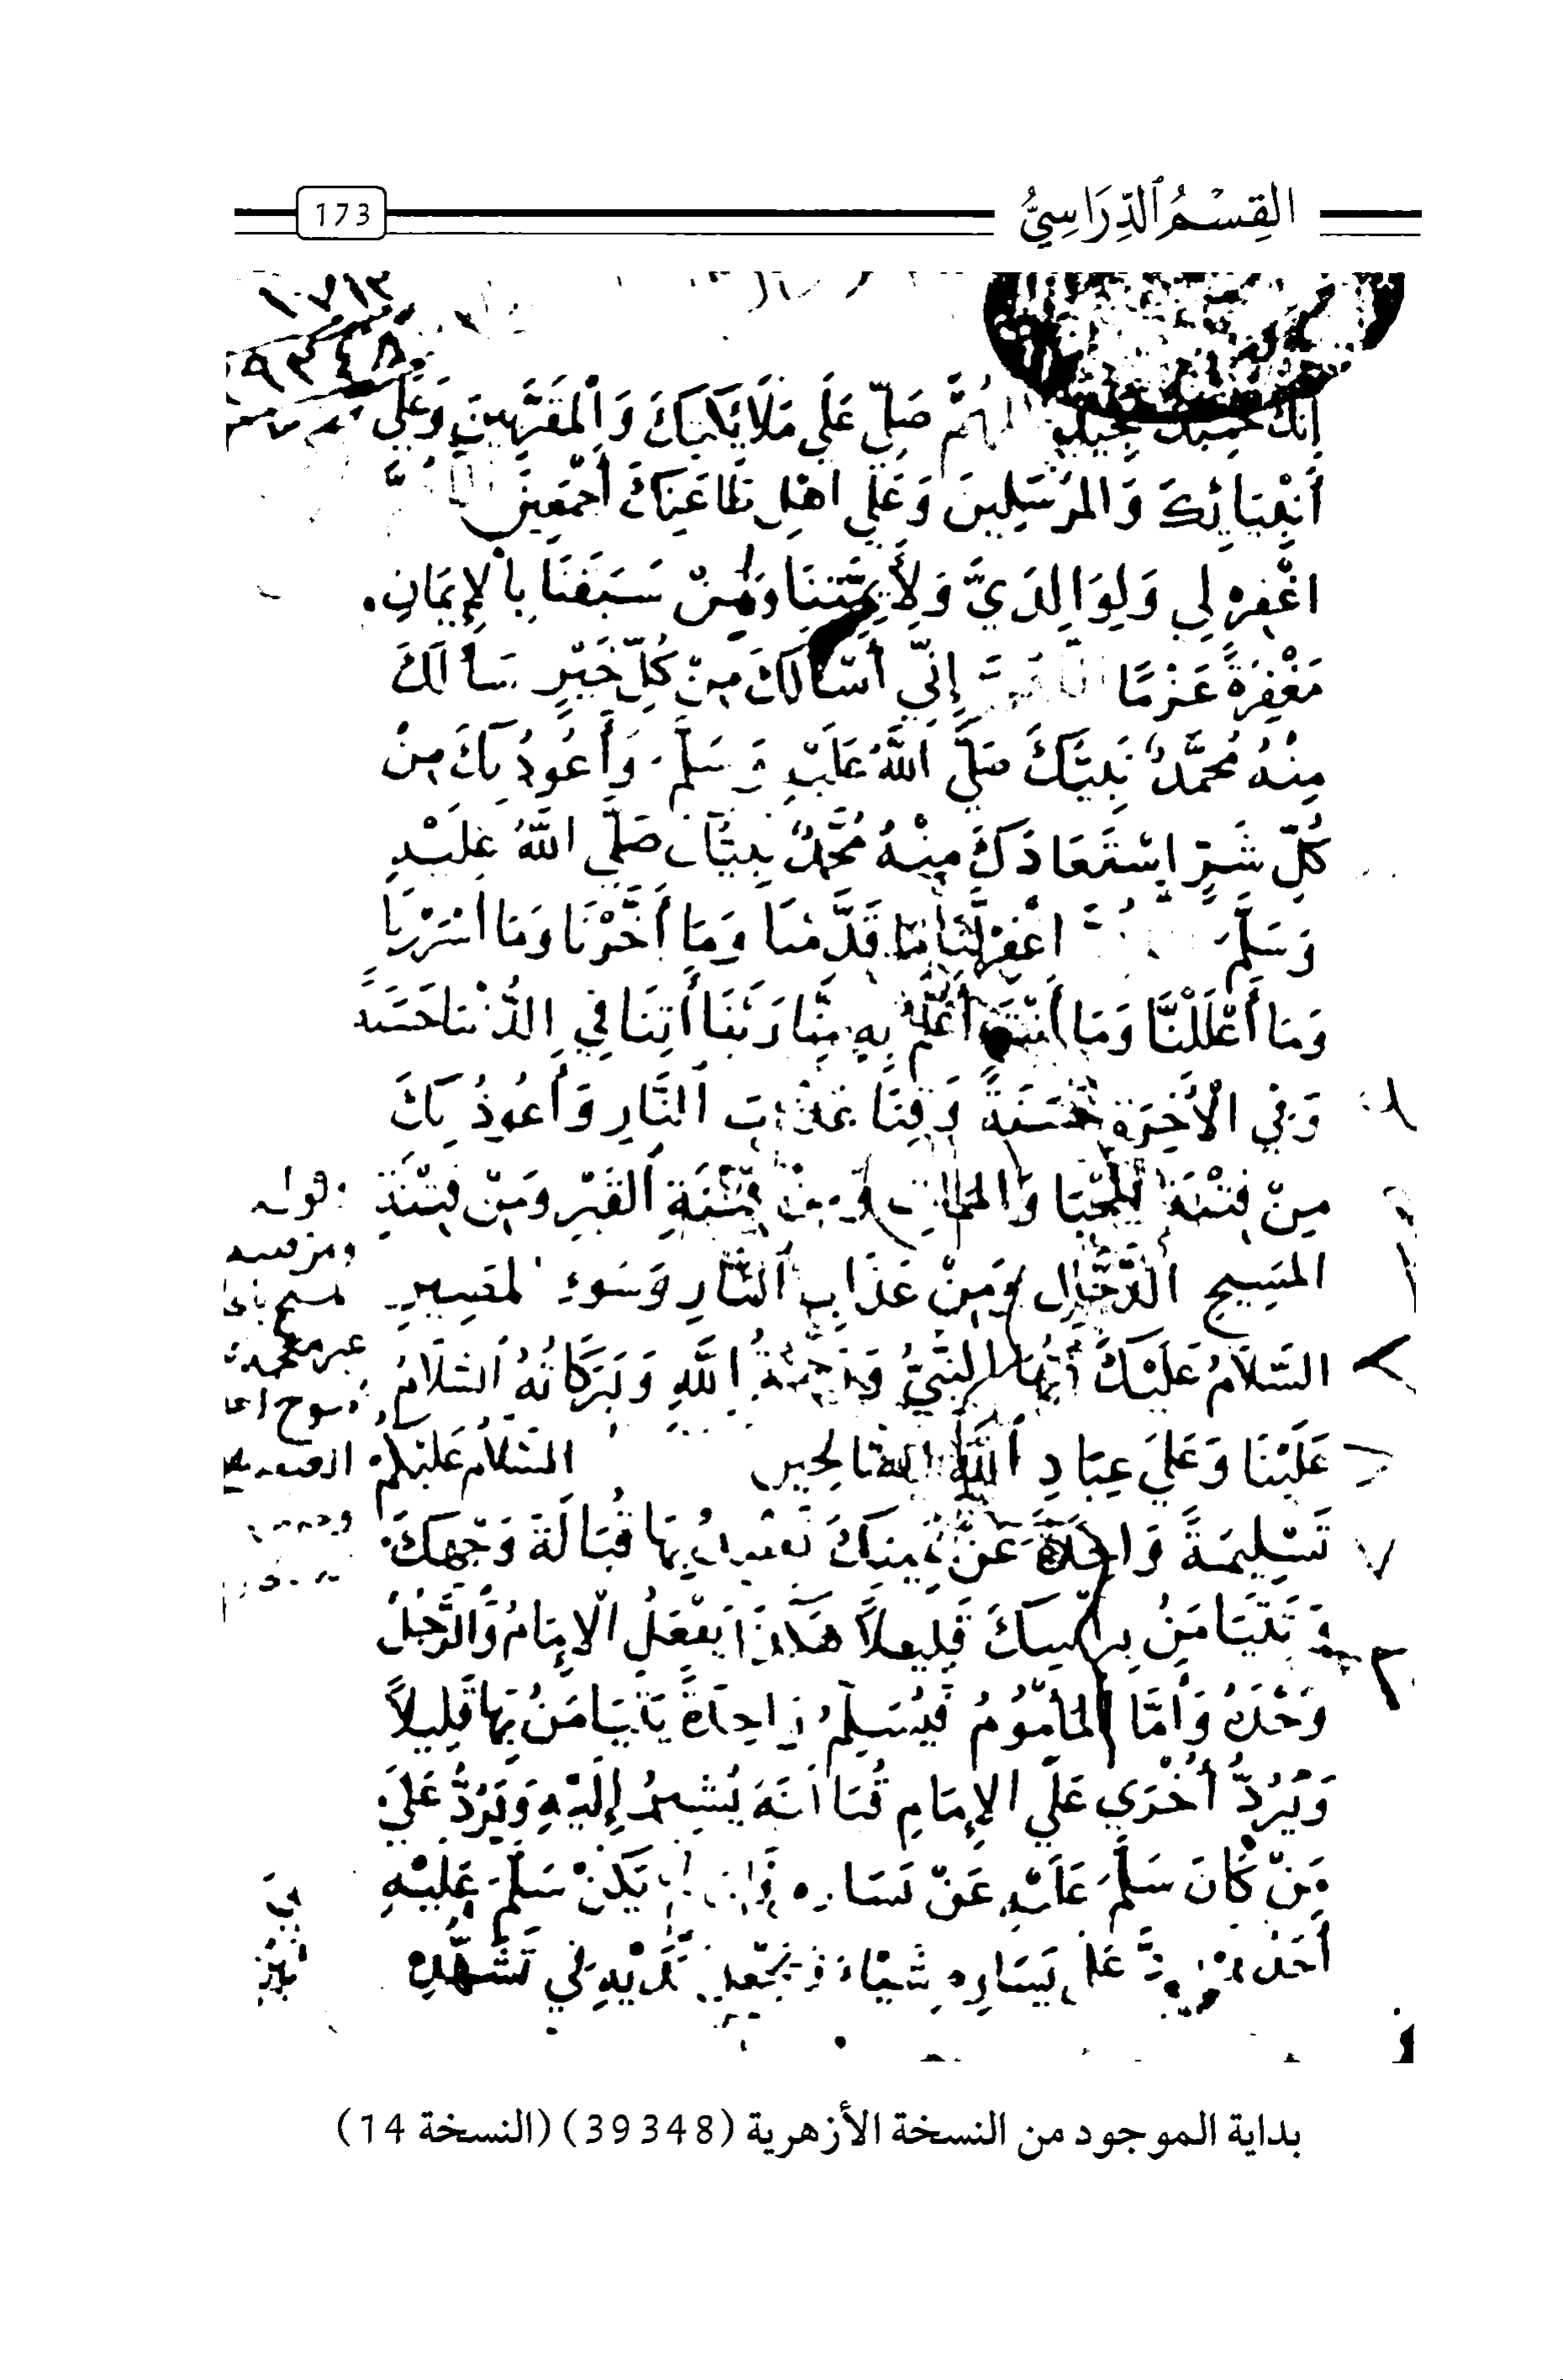 القِسْمُ الدِّرَاسِيُّ
173
١٠٧١٣
٣٩٣٤٨
إِنَّكَ حَمِيدٌ مَجِيدٌ اللهُمَّ صَلِّ عَلَي مَلَائِكَتِكَ وَالْمُقَرَّبِينَ وَعَلَي
أَنْبِيَائِكَ وَالْمُرْسَلِينَ وَعَلَي اهْلِ طَاعَتِكَ أَجْمَعِينَ
اغْفِرْ لِي وَلِوَالِدَيَّ وَلِأَيِمَّتِنَا وَلِمَنْ سَبَقَنَا بِالْإِيمَانِ
مَغْفِرَةً عَزْمًا إِنِّي أَسْأَلُكَ مِنْ كُلِّ خَيْرٍ سَأَلَكَ
مِنْهُ مُحَمَّدٌ نَبِيُّكَ صَلَّي اللَّهُ عَلَيْهِ وَسَلَّمَ وَأَعُوذُ بِكَ مِنْ
كُلِّ شَرٍّ اِسْتَعَاذَكَ مِنْهُ مُحَمَّدٌ نَبِيُّكَ صَلَّي اللَّهُ عَلَيْهِ
وَسَلَّمَ اغْفِرْ لَنَا مَا قَدَّمْنَا وَمَا أَخَّرْنَا وَمَا أَسْرَرْنَا
وَمَا أَعْلَنَّا وَمَا أَنْتَ أَعْلَمُ بِهِ مِنَّا رَبَّنَا أَتِنَا فِي الدُّنْيَا حَسَنَةً
وَفِي الْأَخِرَةِ حَسَنَةً وَقِنَا عَذَابَ النَّارِ وَأَعُوذُ بِكَ
مِنْ فِتْنَةِ الْمَحْيَا وَالْمَمَاتِ وَمِنْ فِتْنَةِ الْقَبْرِ وَمِنْ فِتْنَةِ
الْمَسِيحِ الدَّجَّالِ وَمِنْ عَذَابِ النَّارِ وَسُوءِ الْمَصِيرِ
السَّلَامُ عَلَيْكَ أَيُّهَا النَّبِيُّ وَرَحْمَةُ اللَّهِ وَبَرَكَاتُهُ السَّلَامُ
عَلَيْنَا وَعَلَيَ عِبَادِ اللَّهِ الصَّالِحِينَ السَّلَامُ عَلَيْكُمْ
تَسْلِيمَةً وَاحِدَةً عَنْ يَمِينِكَ تَقْصِدُ بِهَا قُبَالَةَ وَجْهِكَ
وَتَتَيَامَنُ بِرَأْسِكَ قَلِيلًا هَكَذَا يَفْعَلُ الْإِمَامُ وَالرَّجُلُ
وَحْدَهُ وَأَمَّا الْمَأْمُومُ فَيُسَلِّمُ وَاحِدَةً يَتَيَامَنُ بِهَا قَلِيلًا
وَيَرُدُّ أُخْرَي عَلَي الْإِمَامِ قُبَالَتَهُ يُشِيرُ إِلَيْهِ وَيَرُدُّ عَلَيَ
مَنْ كَانَ سَلَّمَ عَلَيْهِ عَنْ يَسَارِهِ فَإِنْ لَمْ يَكُنْ سَلَّمَ عَلَيْهِ
أَحَدٌ لَمْ يَرُدَّ عَلَي يَسَارِهِ شَيْئًا وَيَجْعَلُ يَدَيْهِ فِي تَشَهُّدِهِ
قوله
بداية الموجود من النسخة الأزهرية (39348) (النسخة 14)